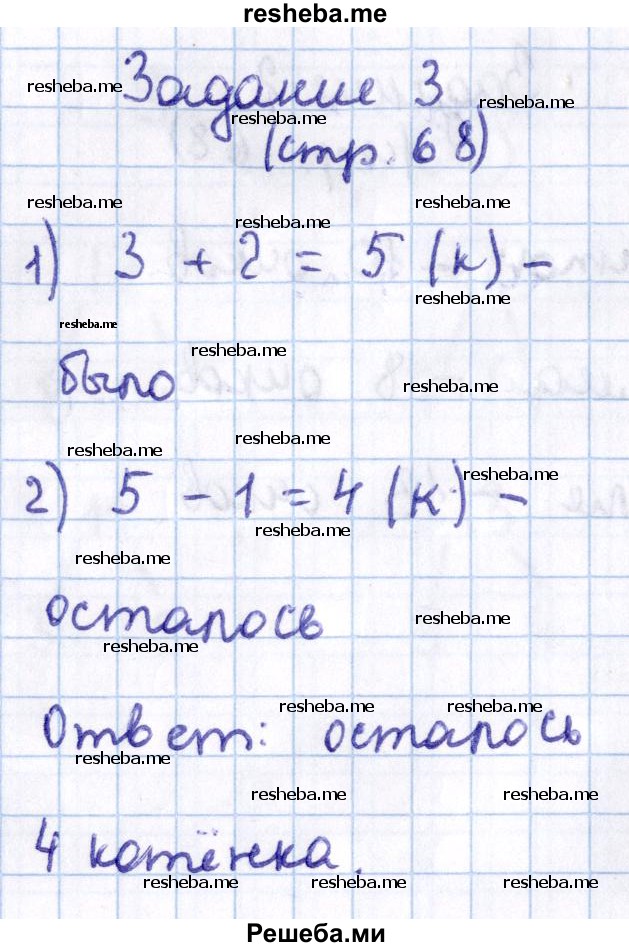 resheba.me
resheba.me
Задание 3
resheba.me
resheba.me
(стр. 68)
resheba.me
resheba.me
resheba.me
1) 3 + 2 = 5 (к) -
resheba.me
resheba.me
resheba.me
было
resheba.me
resheba.me
resheba.me
resheba.me
2) 5 - 1 = 4 (к) -
resheba.me
resheba.me
осталось
resheba.me
resheba.me
resheba.me
resheba.me
Ответ: осталось
resheba.me
resheba.me
resheba.me
4 котёнка.
resheba.me
resheba.me
resheba.me
Решеба.ми